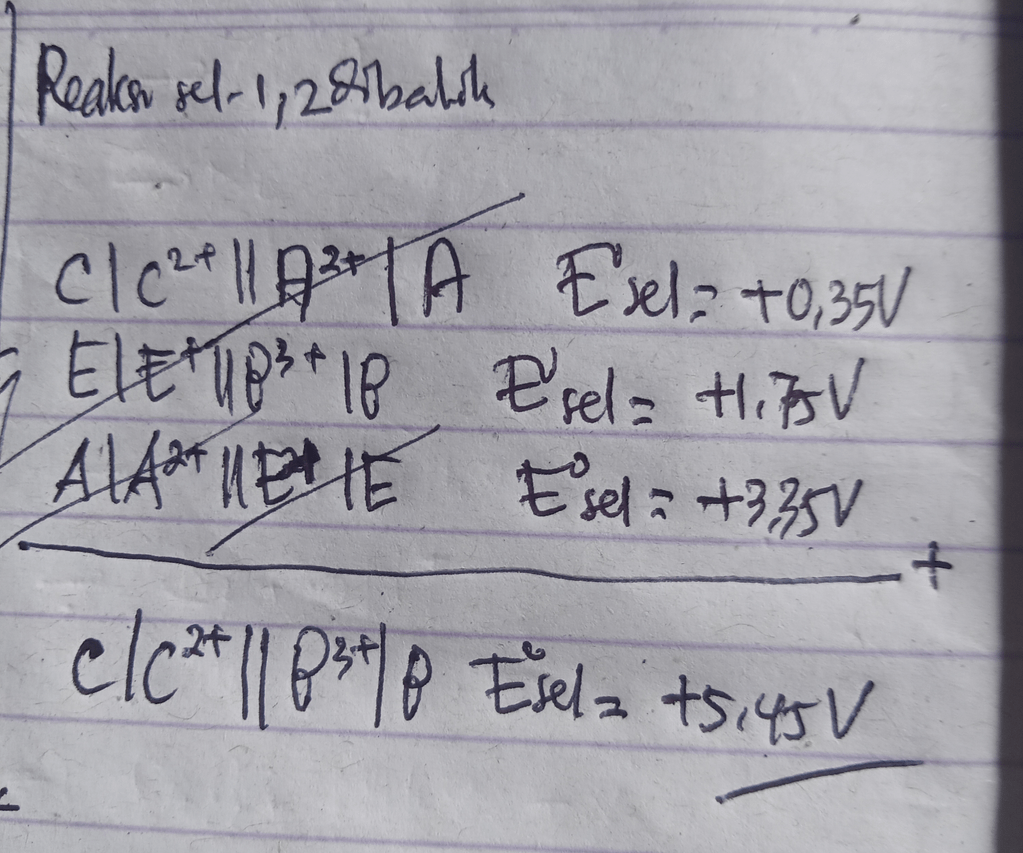 Reaksi sel-1,2 dibalik
C|C²⁺||A²⁺|A E°sel = +0,35V
E|E⁺||B³⁺|B E°sel = +1,75V
A|A²⁺||E²⁺|E E°sel = +3,35V
+
C|C²⁺||B³⁺|B E°sel = +5,45V